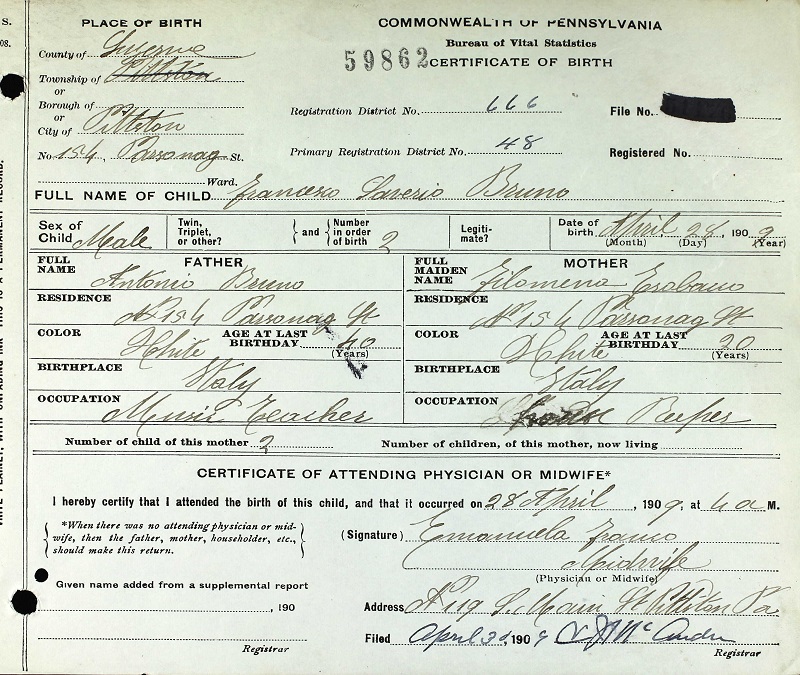 S.
PLACE OF BIRTH
COMMONWEALTH OF PENNSYLVANIA
Bureau of Vital Statistics
59862 CERTIFICATE OF BIRTH
County of Luzerne
Township of Pittston
or
Borough of
or
City of Pittston
No. 154, Parsonag St.
Ward.
Registration District No. 666
File No.
Primary Registration District No. 48
Registered No.
FULL NAME OF CHILD Francesco Saverio Bruno
Sex of Child Male
Twin, Triplet, or other?
and
Number in order of birth 2
Legiti-mate?
Date of birth April 28, 1909
(Month) (Day) (Year)
FATHER
FULL NAME Antonio Bruno
RESIDENCE No 154 Parsonag St
COLOR White
AGE AT LAST BIRTHDAY 40
(Years)
BIRTHPLACE Italy
OCCUPATION Music Teacher
MOTHER
FULL MAIDEN NAME Filomena
RESIDENCE No 154 Parsonag St
COLOR White
AGE AT LAST BIRTHDAY 20
(Years)
BIRTHPLACE Italy
OCCUPATION
Number of child of this mother 2
Number of children, of this mother, now living
CERTIFICATE OF ATTENDING PHYSICIAN OR MIDWIFE*
I hereby certify that I attended the birth of this child, and that it occurred on 28 April, 1909, at 4 a M.
*When there was no attending physician or mid-
wife, then the father, mother, householder, etc.,
should make this return.
(Signature) Emanuela
Midwife
(Physician or Midwife)
Given name added from a supplemental report
, 190
Registrar
Address S. Main St Pittston Pa
Filed April 190 9
Registrar